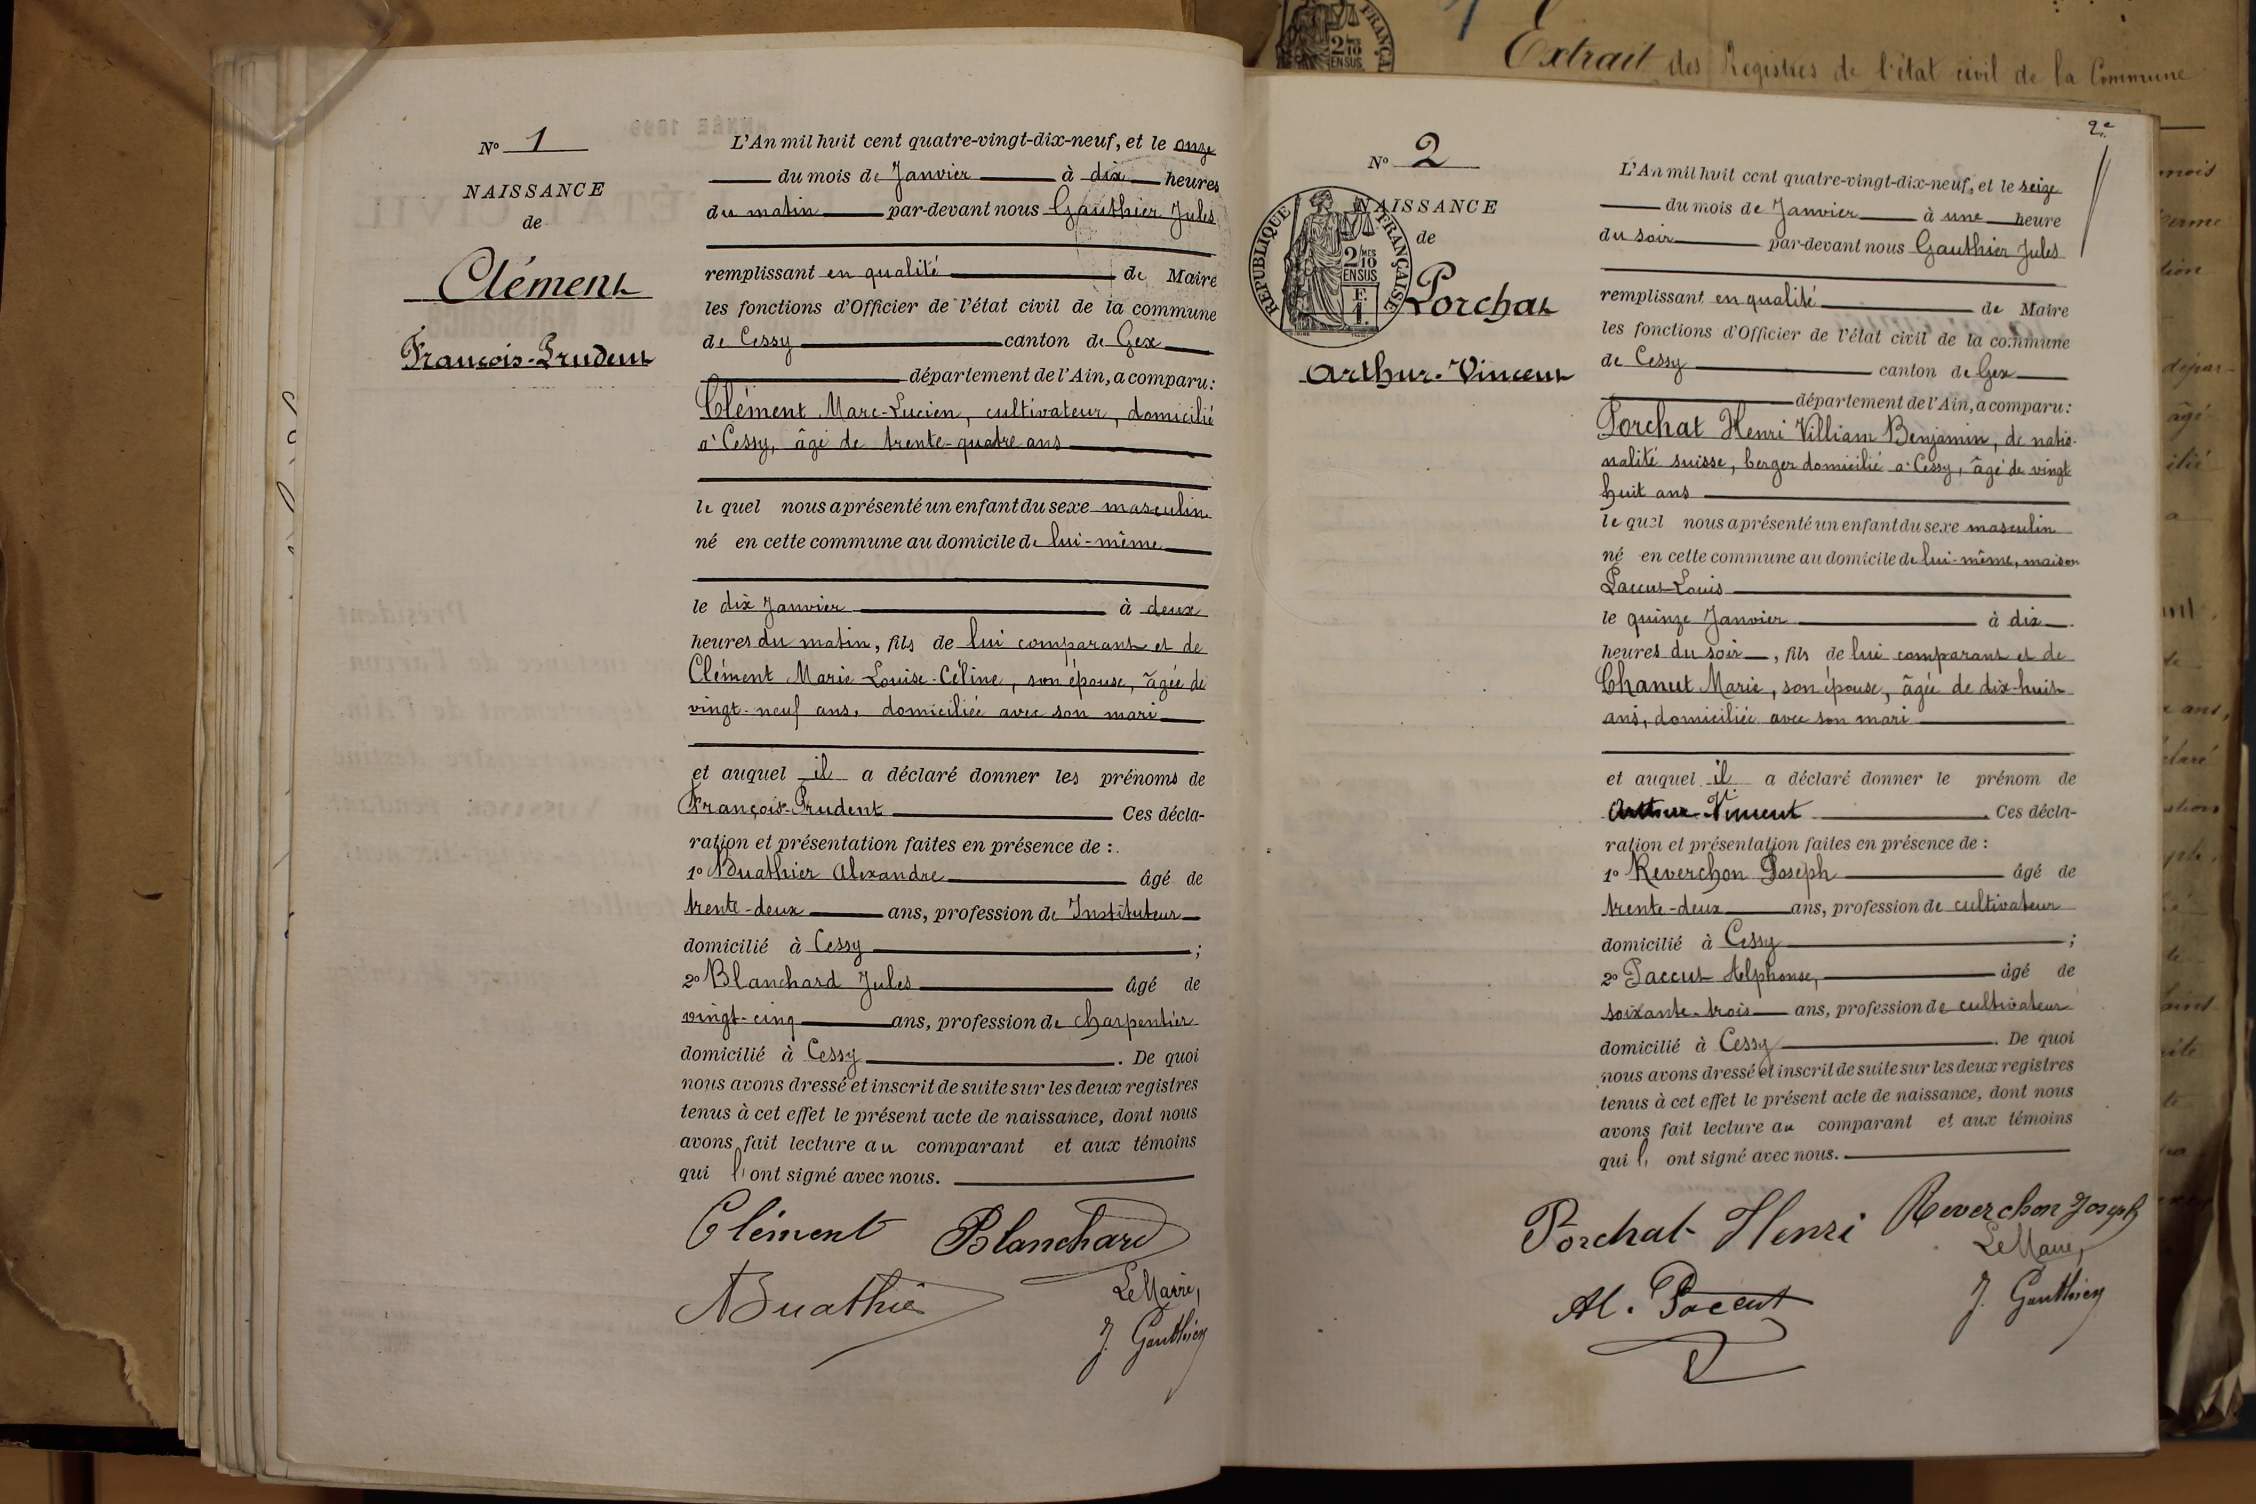 Extrait des Registres de l'état civil de la Commune
N° 1
NAISSANCE
de
Clément
François-Prudent
L'An mil huit cent quatre-vingt-dix-neuf, et le onze
du mois de Janvier à dix heures
du matin par-devant nous Gauthier Jules
remplissant en qualité de Maire
les fonctions d'Officier de l'état civil de la commune
de Cessy canton de Gex
département de l'Ain, a comparu:
Clément Marc-Lucien, cultivateur, domicilié
à Cessy, âgé de trente-quatre ans
le quel nous a présenté un enfant du sexe masculin
né en cette commune au domicile de lui-même
le dix Janvier à deux
heures du matin, fils de lui comparant et de
Clément Marie Louise-Céline, son épouse, âgée de
vingt-neuf ans, domiciliée avec son mari
et auquel il a déclaré donner les prénoms de
François-Prudent Ces décla-
ration et présentation faites en présence de :
1° Buathier Alexandre âgé de
trente-deux ans, profession de Instituteur
domicilié à Cessy ;
2° Blanchard Jules âgé de
vingt-cinq ans, profession de charpentier
domicilié à Cessy . De quoi
nous avons dressé et inscrit de suite sur les deux registres
tenus à cet effet le présent acte de naissance, dont nous
avons fait lecture au comparant et aux témoins
qui l'ont signé avec nous.
Clément Blanchard
ABuathier
Le Maire,
J. Gauthier
2e
N° 2
NAISSANCE
de
Porchat
Arthur-Vincent
RÉPUBLIQUE FRANÇAISE
2/10 MES
EN SUS
L'An mil huit cent quatre-vingt-dix-neuf, et le seize
du mois de Janvier à une heure
du soir par-devant nous Gauthier Jules
remplissant en qualité de Maire
les fonctions d'Officier de l'état civil de la commune
de Cessy canton de Gex
département de l'Ain, a comparu:
Porchat Henri Villiam Benjamin, de natio-
nalité suisse, berger domicilié à Cessy, âgé de vingt
huit ans
le quel nous a présenté un enfant du sexe masculin
né en cette commune au domicile de lui-même, maison
Paccut Louis
le quinze Janvier à dix
heures du soir, fils de lui comparant et de
Chanut Marie, son épouse, âgée de dix-huit
ans, domiciliée avec son mari
et auquel il a déclaré donner le prénom de
Arthur-Vincent . Ces décla-
ration et présentation faites en présence de :
1° Reverchon Joseph âgé de
trente-deux ans, profession de cultivateur
domicilié à Cessy ;
2° Paccut Alphonse, âgé de
soixante-trois ans, profession de cultivateur
domicilié à Cessy . De quoi
nous avons dressé et inscrit de suite sur les deux registres
tenus à cet effet le présent acte de naissance, dont nous
avons fait lecture au comparant et aux témoins
qui l' ont signé avec nous.
Porchat Henri Reverchon Joseph
Le Maire,
Al. Paccut
J. Gauthier